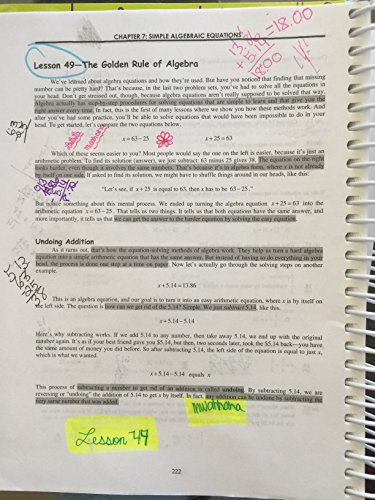 CHAPTER 7: SIMPLE ALGEBRAIC EQUATIONS
18.00
Lesson 49—The Golden Rule of Algebra
We've learned about algebra equations and how they're used. But have you noticed that finding that missing
number can be pretty hard? That's because, in the last two problem sets, you've had to solve all the equations in
your head. Don't get stressed out, though, because algebra equations aren't really supposed to be solved that way.
Algebra actually has step-by-step procedures for solving equations that are simple to learn and that give you the
right answer every time. In fact, this is the first of many lessons where we show you how these methods work. And
after you've had some practice, you'll be able to solve equations that would have been impossible to do in your
head. To get started, let's compare the two equations below.
x = 63 – 25 x + 25 = 63
Which of these seems easier to you? Most people would say the one on the left is easier, because it's just an
arithmetic problem. To find its solution (answer), we just subtract: 63 minus 25 gives 38. The equation on the right
looks harder, even though it involves the same numbers. That's because it's in algebra form, where x is not already
by itself on one side. If asked to find its solution, we might have to shuffle things around in our heads, like this:
"Let's see, if x + 25 is equal to 63, then x has to be 63 – 25."
But notice something about this mental process. We ended up turning the algebra equation x + 25 = 63 into the
arithmetic equation x = 63 – 25. That tells us two things. It tells us that both equations have the same answer, and
more importantly, it tells us that we can get the answer to the harder equation by solving the easy equation.
Undoing Addition
As it turns out, that's how the equation-solving methods of algebra work. They help us turn a hard algebra
equation into a simple arithmetic equation that has the same answer. But instead of having to do everything in your
head, the process is done one step at a time on paper. Now let's actually go through the solving steps on another
example.
x + 5.14 = 13.86
This is an algebra equation, and our goal is to turn it into an easy arithmetic equation, where x is by itself on
the left side. The question is how can we get rid of the 5.14? Simple. We just subtract 5.14, like this.
x + 5.14 – 5.14
Here's why subtracting works. If we add 5.14 to any number, then take away 5.14, we end up with the original
number again. It's as if your best friend gave you $5.14, but then, two seconds later, took the $5.14 back—you have
the same amount of money you did before. So after subtracting 5.14, the left side of the equation is equal to just x,
which is what we wanted.
x + 5.14 – 5.14 equals x
This process of subtracting a number to get rid of an addition is called undoing. By subtracting 5.14, we are
reversing or "undoing" the addition of 5.14 to get x by itself. In fact, any addition can be undone by subtracting the
very same number that was added.
mwahhaha
Lesson 49
222